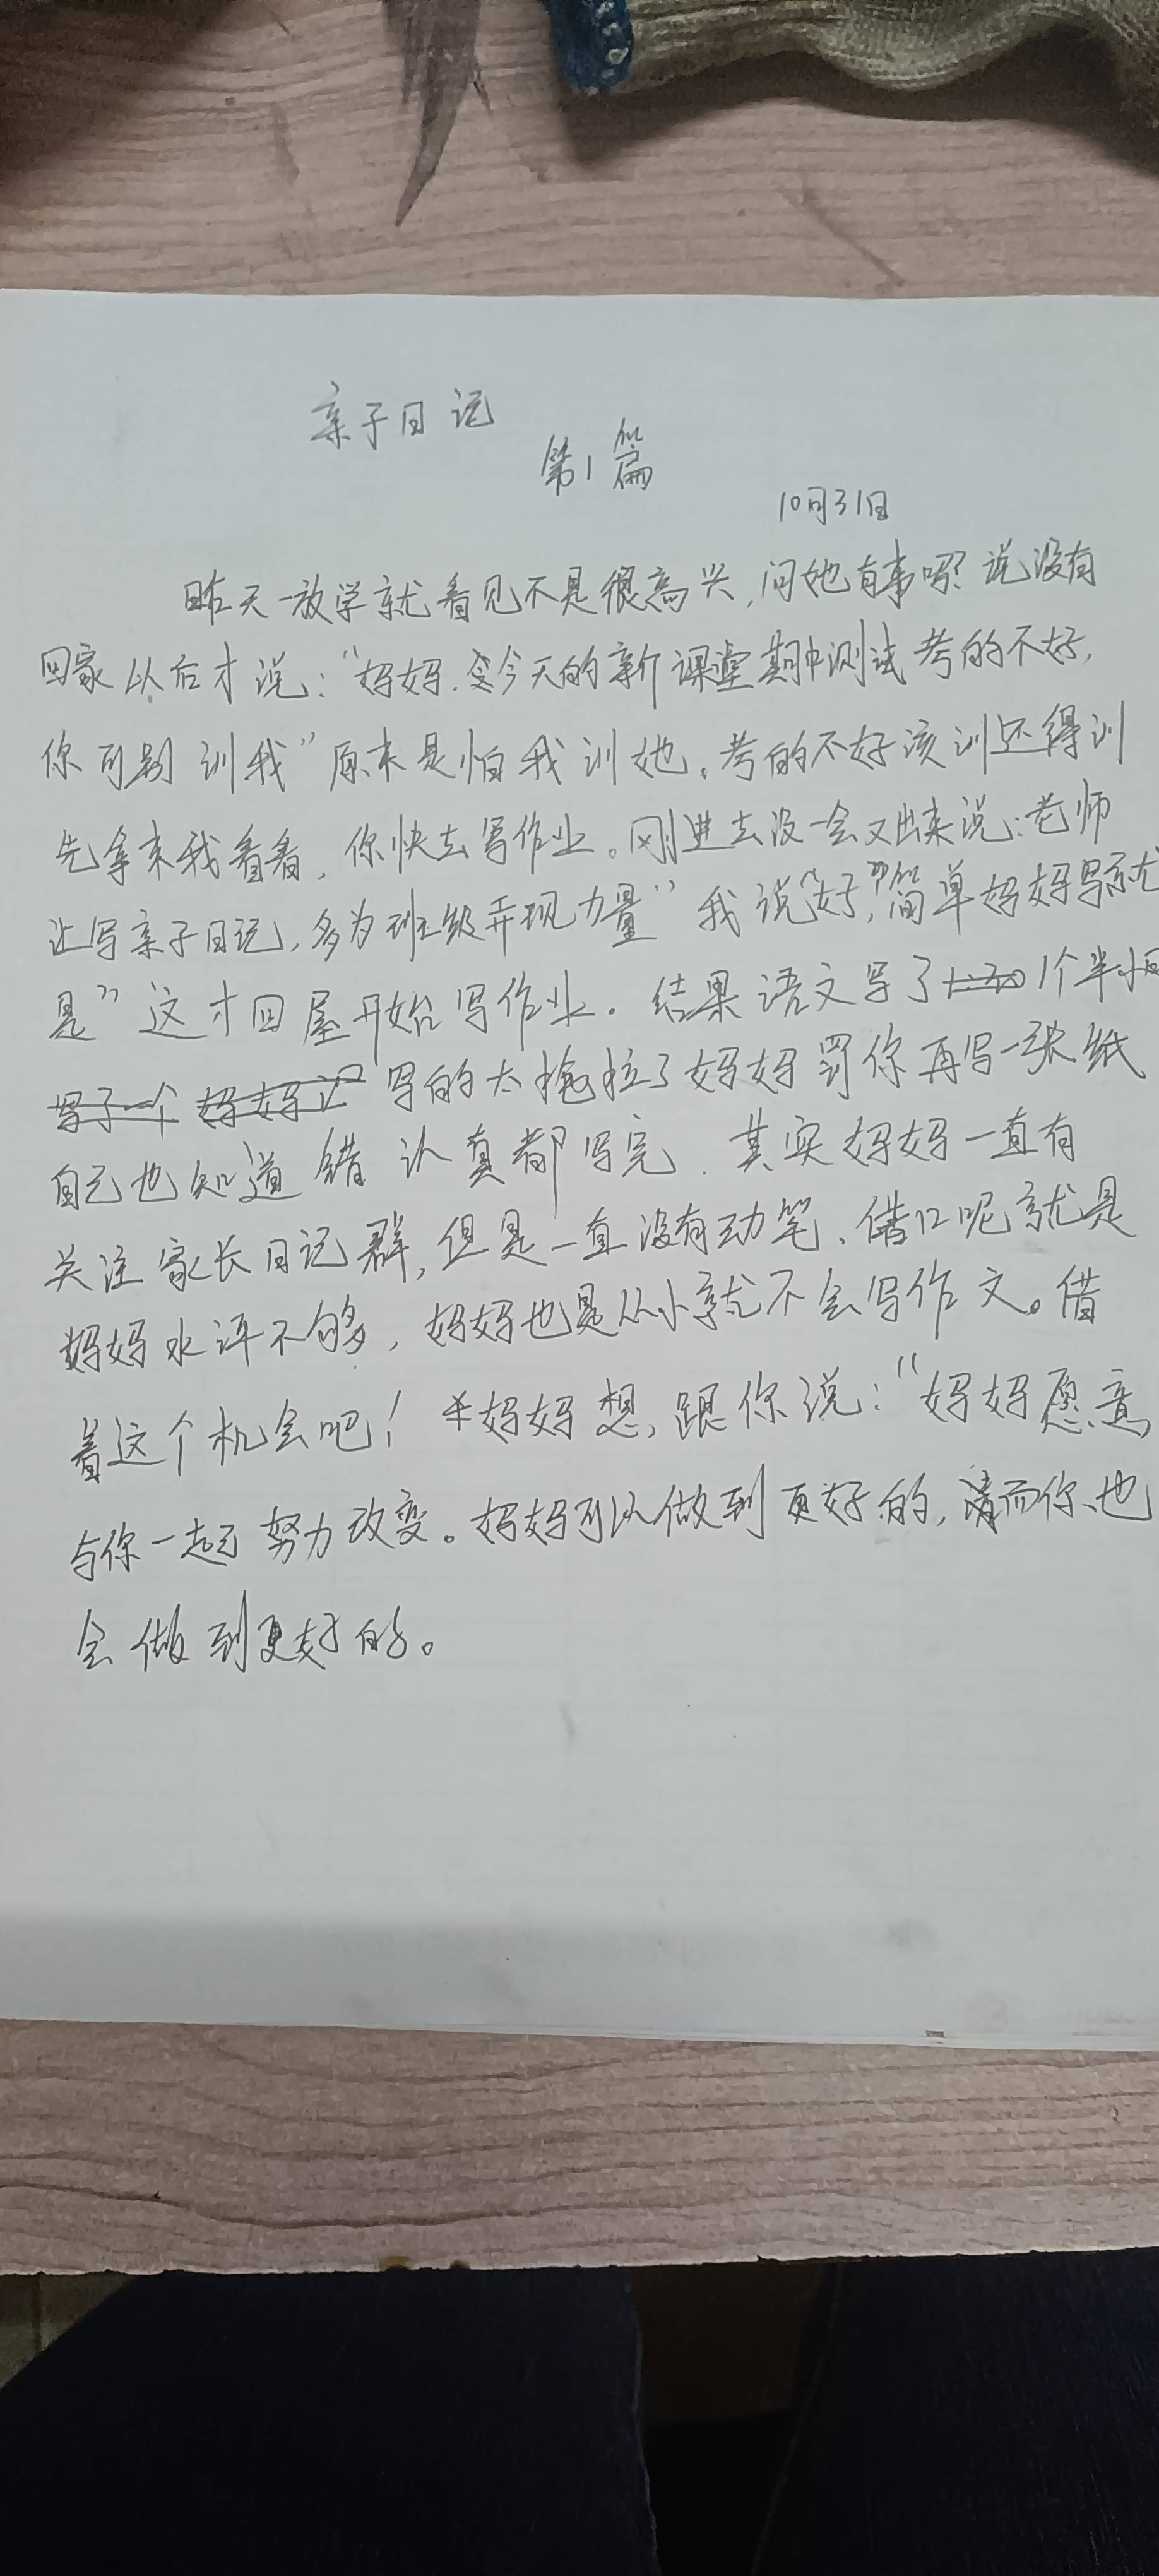 亲子日记
第1篇
10月31日
昨天一放学就看见不是很高兴,问她有事吗?说没有
回家以后才说:“妈妈.今天的新课堂期中测试考的不好,
你可别训我”原来是怕我训她。考的不好该训还得训
先拿来我看看,你快去写作业。刚进去没一会又出来说:老师
让写亲子日记,多为班级弄现力量”我说“好,”简单妈妈写就
是”这才回屋开始写作业。结果语文写了1个半小时
写的太拖拉了妈妈罚你再写一张纸
自己也知道错认真都写完.其实妈妈一直有
关注家长日记群,但是一直没有动笔、借口呢就是
妈妈水评不够,妈妈也是从小就不会写作文。借
着这个机会吧!妈妈想,跟你说:“妈妈愿意,
与你一起努力改变。妈妈可以做到更好的,而你、也
会做到更好的。